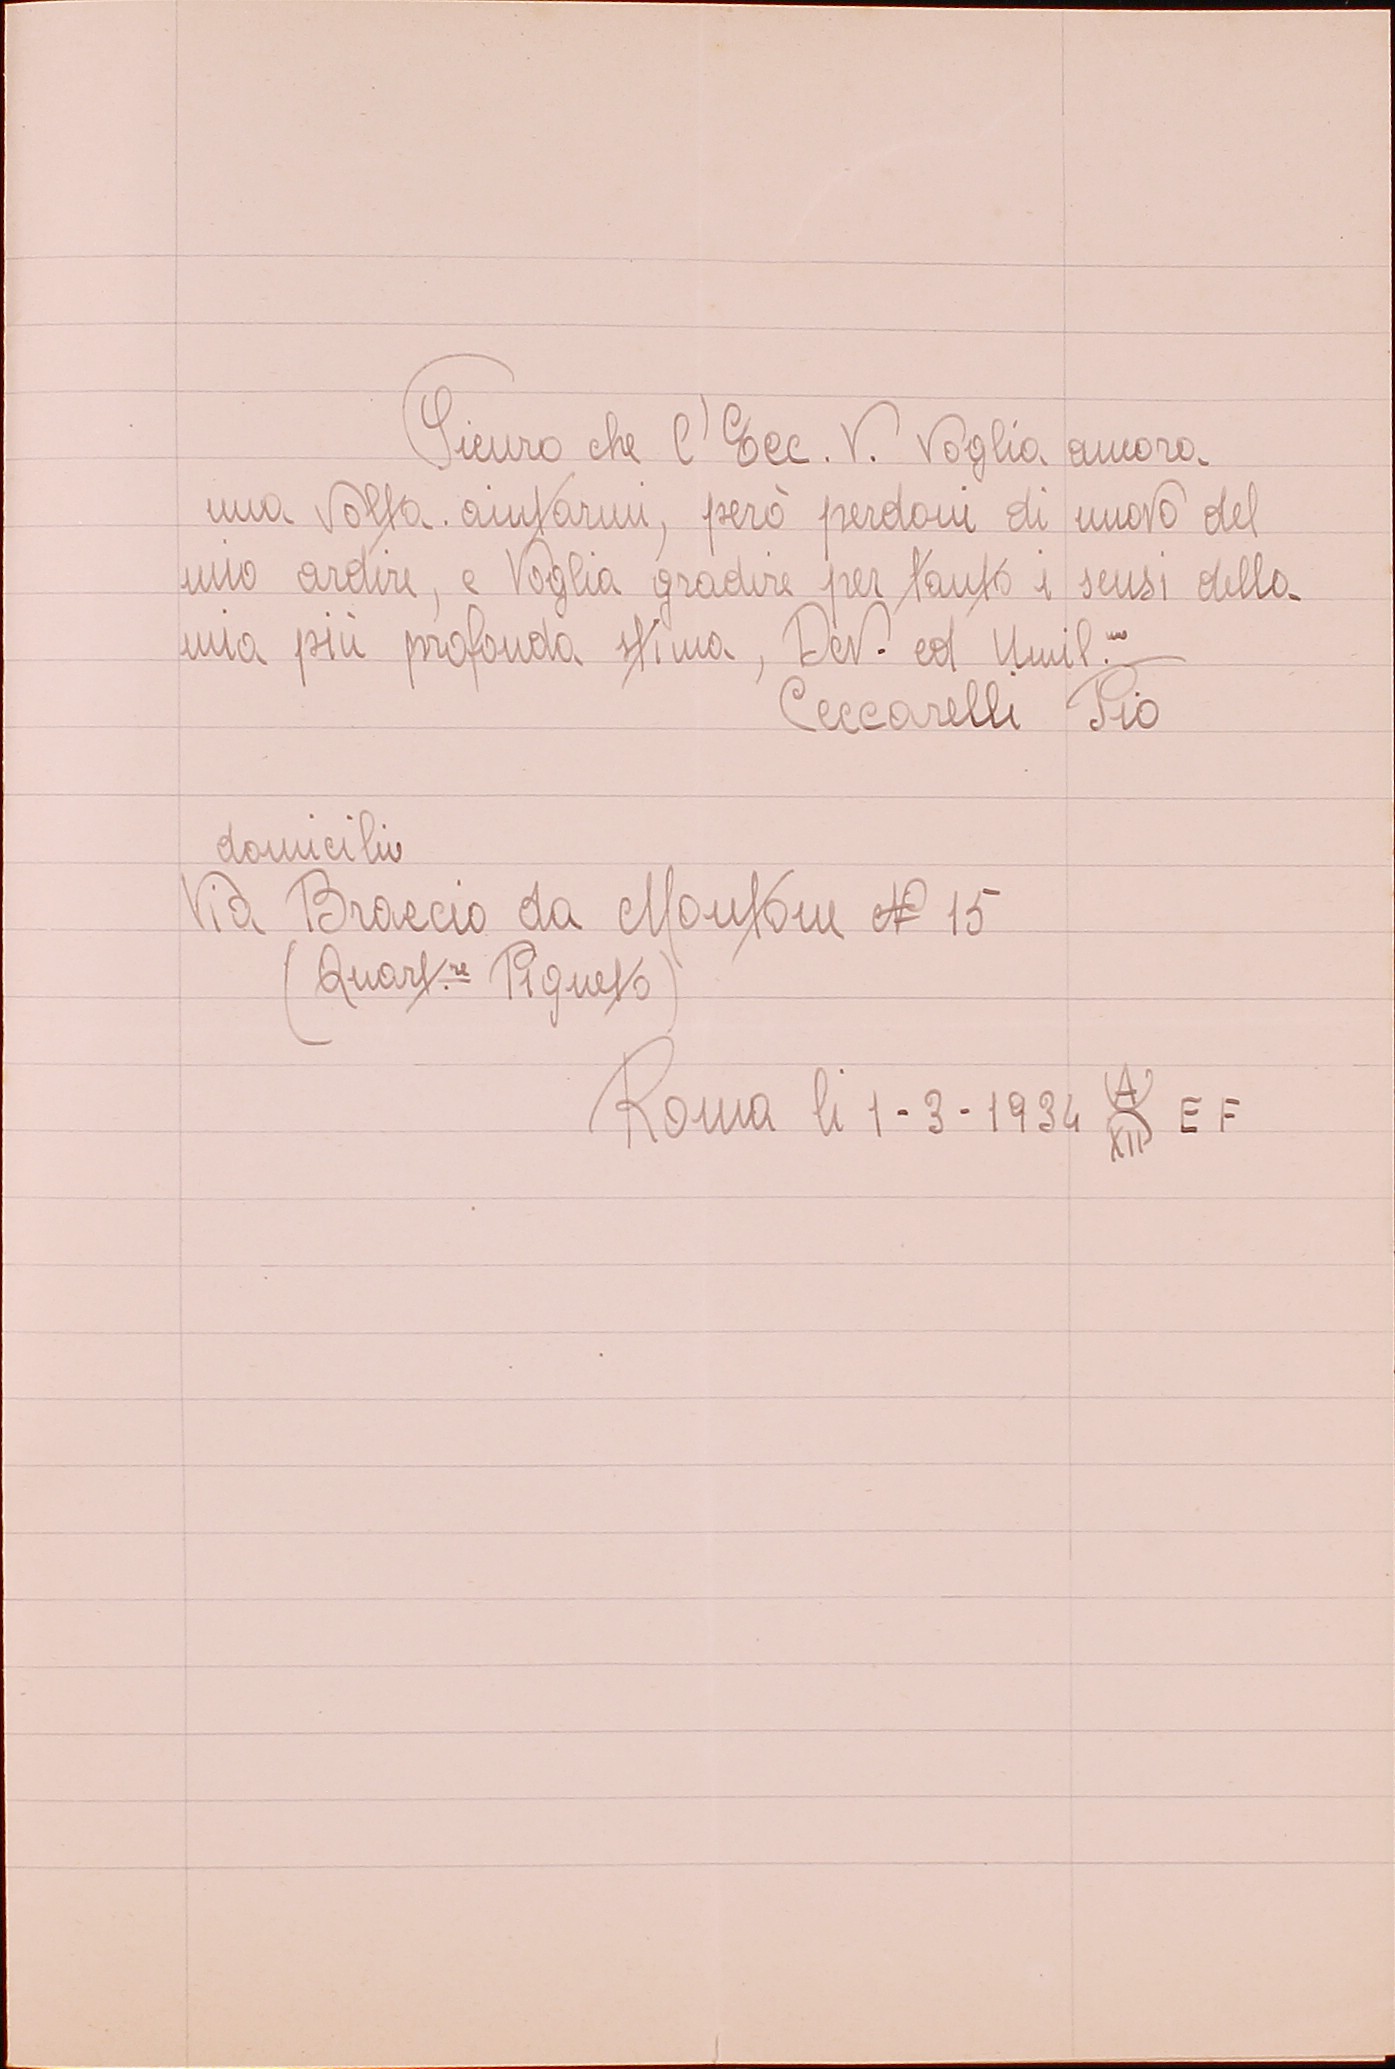 Sicuro che l'Ecc. V. Voglia ancora
una Volta aiutarmi, però perdoni di nuovo del
mio ardire, e Voglia gradire per tanto i sensi della
mia più profonda stima, Dev. ed Umil.mo
Ceccarelli Pio
domicilio
Via Braccio da Montone N° 15
(Quart.re Pigneto)
Roma li 1-3-1934 A XII E F